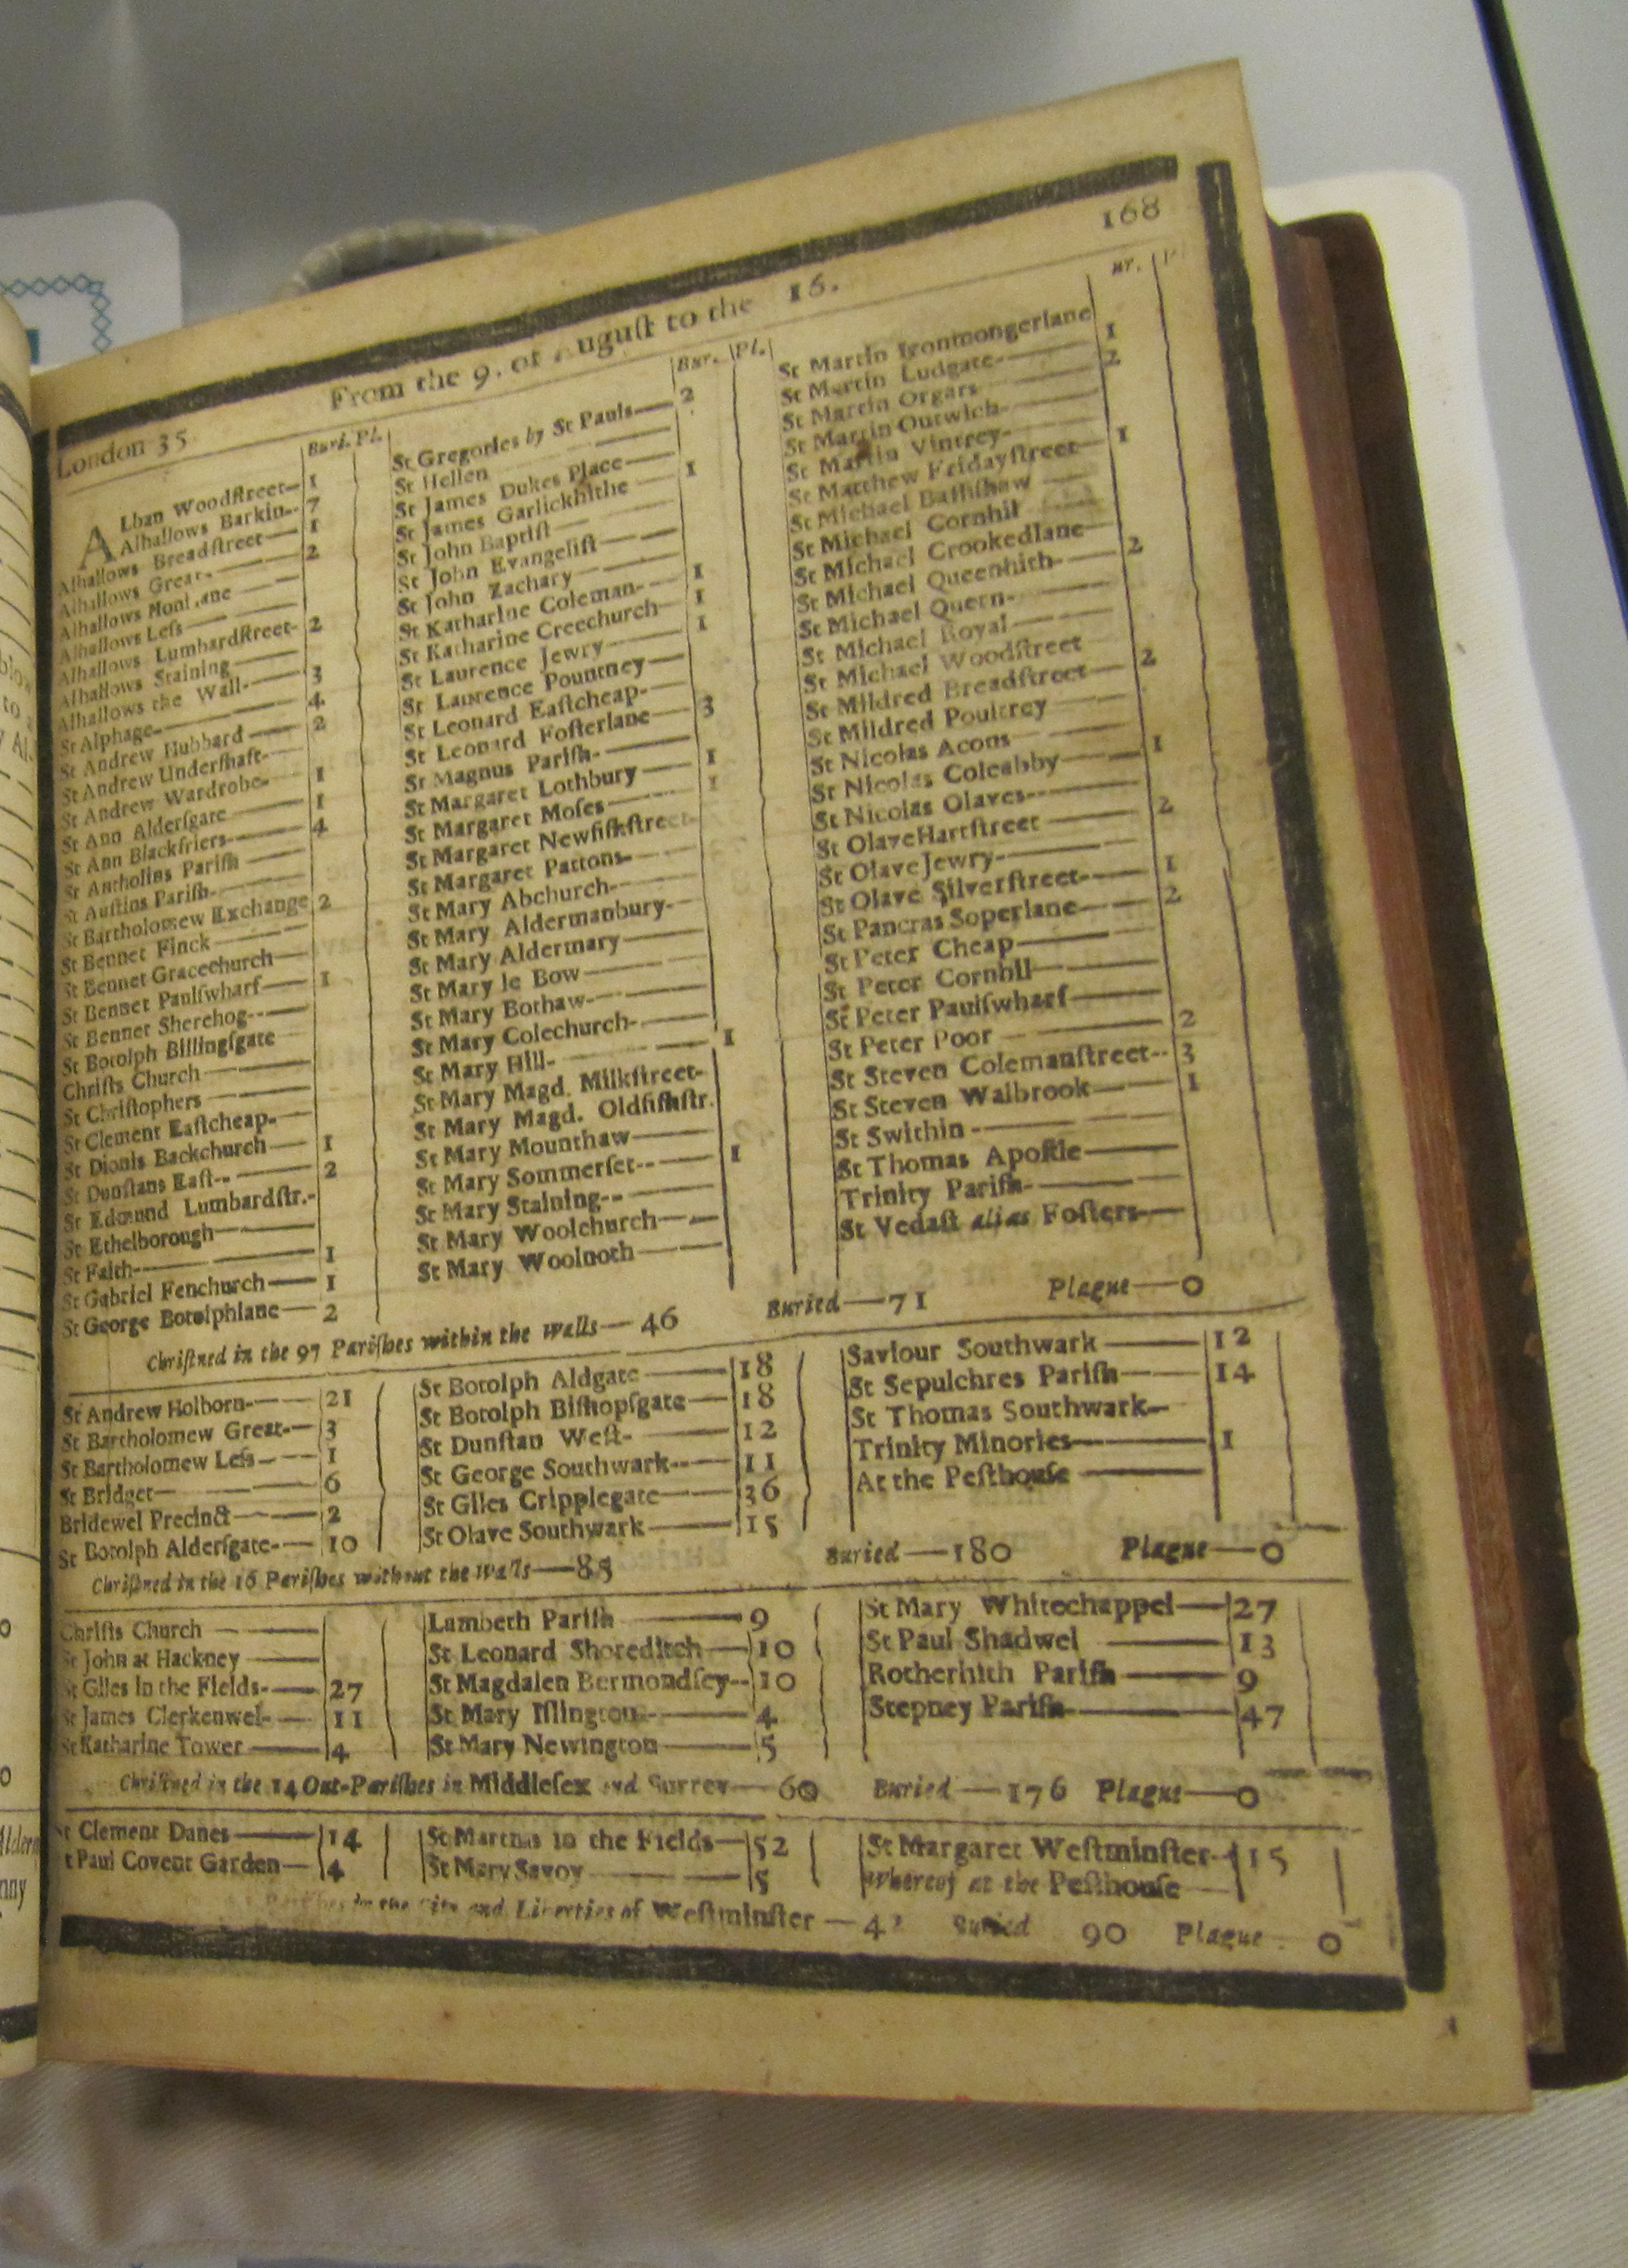 168
From the 9. of August to the 16.
London 35
Buri. Pl.
ALban Woodſtreet— 1
Alhallows Barkin-- 7
Alhallows Breadſtreet— 1
Alhallows Great-—— 2
Alhallows
Alhallows Leſs——
Alhallows Lumbardſtreet- 2
Alhallows Staining——
Alhallows the Wall-—— 3
St Alphage-—— 4
St Andrew Hubbard—— 2
St Andrew Underſhaft-
St Andrew Wardrobe- 1
St Ann Alderſgate—— 1
St Ann Blackfriers—— 4
St Antholins Pariſh——
St Auſtins Pariſh-——
St Bartholomew Exchange 2
St Bennet Finck——
St Bennet Gracechurch—
St Bennet Paulſwharf— 1
St Bennet Sherehog--—
St Botolph Billingſgate
Chriſts Church——
St Chriſtophers——
St Clement Eaſtcheap-—
St Dionis Backchurch— 1
St Dunſtans Eaſt--—— 2
St Edmund Lumbardſtr.-
St Ethelborough——
St Faith—— 1
St Gabriel Fenchurch— 1
St George Botolphlane— 2
Bur. Pl.
St Gregories by St Pauls— 2
St Hellen——
St James Dukes Place—
St James Garlickhithe— 1
St John Baptiſt——
St John Evangeliſt——
St John Zachary——
St Katharine Coleman-- 1
St Katharine Creechurch 1
St Laurence Jewry—— 1
St Laurence Pountney—
St Leonard Eaſtcheap-—
St Leonard Foſterlane— 3
St Magnus Pariſh-——
St Margaret Lothbury— 1
St Margaret Moſes—— 1
St Margaret Newfiſhſtreet-
St Margaret Pattons-—
St Mary Abchurch-——
St Mary Aldermanbury-
St Mary Aldermary——
St Mary le Bow——
St Mary Bothaw-——
St Mary Colechurch-——
St Mary Hill-—— 1
St Mary Magd. Milkſtreet-
St Mary Magd. Oldfiſhſtr.
St Mary Mounthaw——
St Mary Sommerſet--— 1
St Mary Staining--——
St Mary Woolchurch——
St Mary Woolnoth——
St Martin Ironmongerlane
St Martin Ludgate-—— 1
St Martin Orgars—— 2
St Martin Outwich-——
St Martin Vintrey-——
St Matthew Fridayſtreet— 1
St Michael Baſſiſhaw——
St Michael Cornhil——
St Michael Crookedlane—
St Michael Queenhith-— 2
St Michael Quern-——
St Michael Royal——
St Michael Woodſtreet
St Mildred Breadſtreet— 2
St Mildred Poultrey——
St Nicolas Acons——
St Nicolas Coleabby—— 1
St Nicolas Olaves-——
St Olave Hartſtreet—— 2
St Olave Jewry-——
St Olave Silverſtreet-— 1
St Pancras Soperlane—— 2
St Peter Cheap——
St Peter Cornhil——
St Peter Paulſwharf——
St Peter Poor—— 2
St Steven Colemanſtreet-- 3
St Steven Walbrook—— 1
St Swithin-——
St Thomas Apoſtle——
Trinity Pariſh-——
St Vedaſt alias Foſters—
Chriſtned in the 97 Pariſhes within the Walls— 46 Buried—71 Plague—0
St Andrew Holborn-— 21
St Bartholomew Great-— 3
St Bartholomew Leſs-— 1
St Bridget—— 6
Bridewel Precinct—— 2
St Botolph Alderſgate-— 10
St Botolph Aldgate—— 18
St Botolph Biſhopſgate— 18
St Dunſtan Weſt-—— 12
St George Southwark--— 11
St Giles Cripplegate—— 36
St Olave Southwark—— 15
Saviour Southwark—— 12
St Sepulchres Pariſh—— 14
St Thomas Southwark—
Trinity Minories—— 1
At the Peſthouſe——
Chriſtned in the 16 Pariſhes without the Walls—85 Buried—180 Plague—0
Chriſts Church——
St John at Hackney——
St Giles in the Fields-— 27
St James Clerkenwel-— 11
St Katharine Tower—— 4
Lambeth Pariſh—— 9
St Leonard Shoreditch— 10
St Magdalen Bermondſey-- 10
St Mary Iſlington-—— 4
St Mary Newington—— 5
St Mary Whitechappel— 27
St Paul Shadwel—— 13
Rotherhith Pariſh—— 9
Stepney Pariſh-—— 47
Chriſtned in the 14 Out-Pariſhes in Middleſex and Surrey— 60 Buried—176 Plague—0
St Clement Danes—— 14
St Paul Covent Garden— 4
St Martins in the Fields— 52
St Mary Savoy—— 5
St Margaret Weſtminſter- 15
Whereof at the Peſthouſe—
Pariſhes in the City and Liberties of Weſtminſter— Buried 90 Plague 0